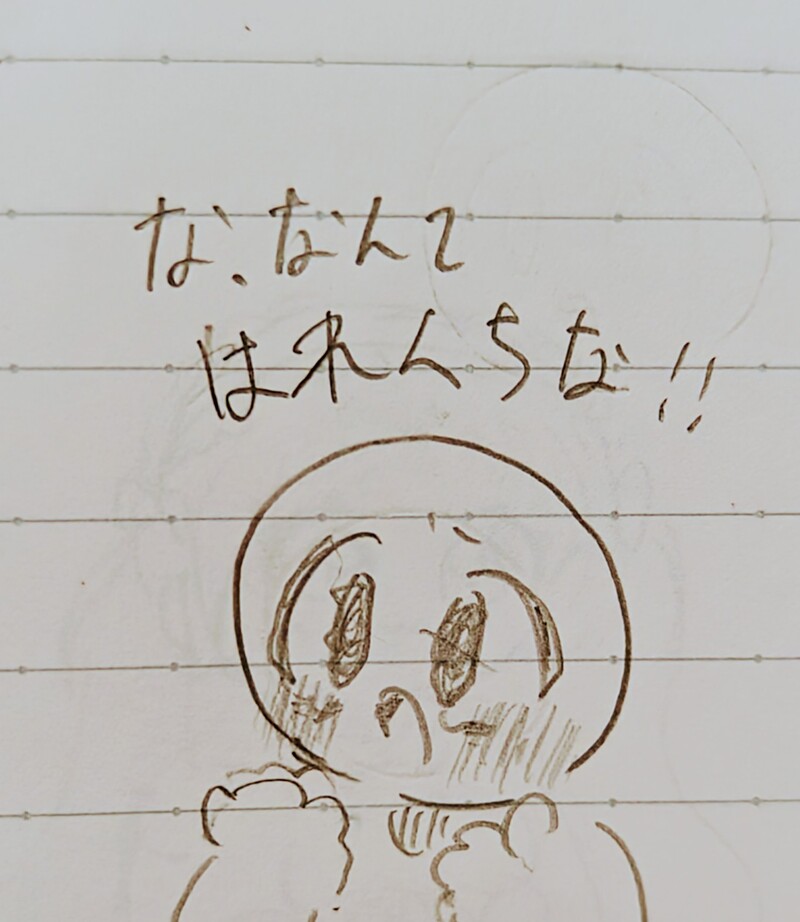 な、なんて
はれんちな!!